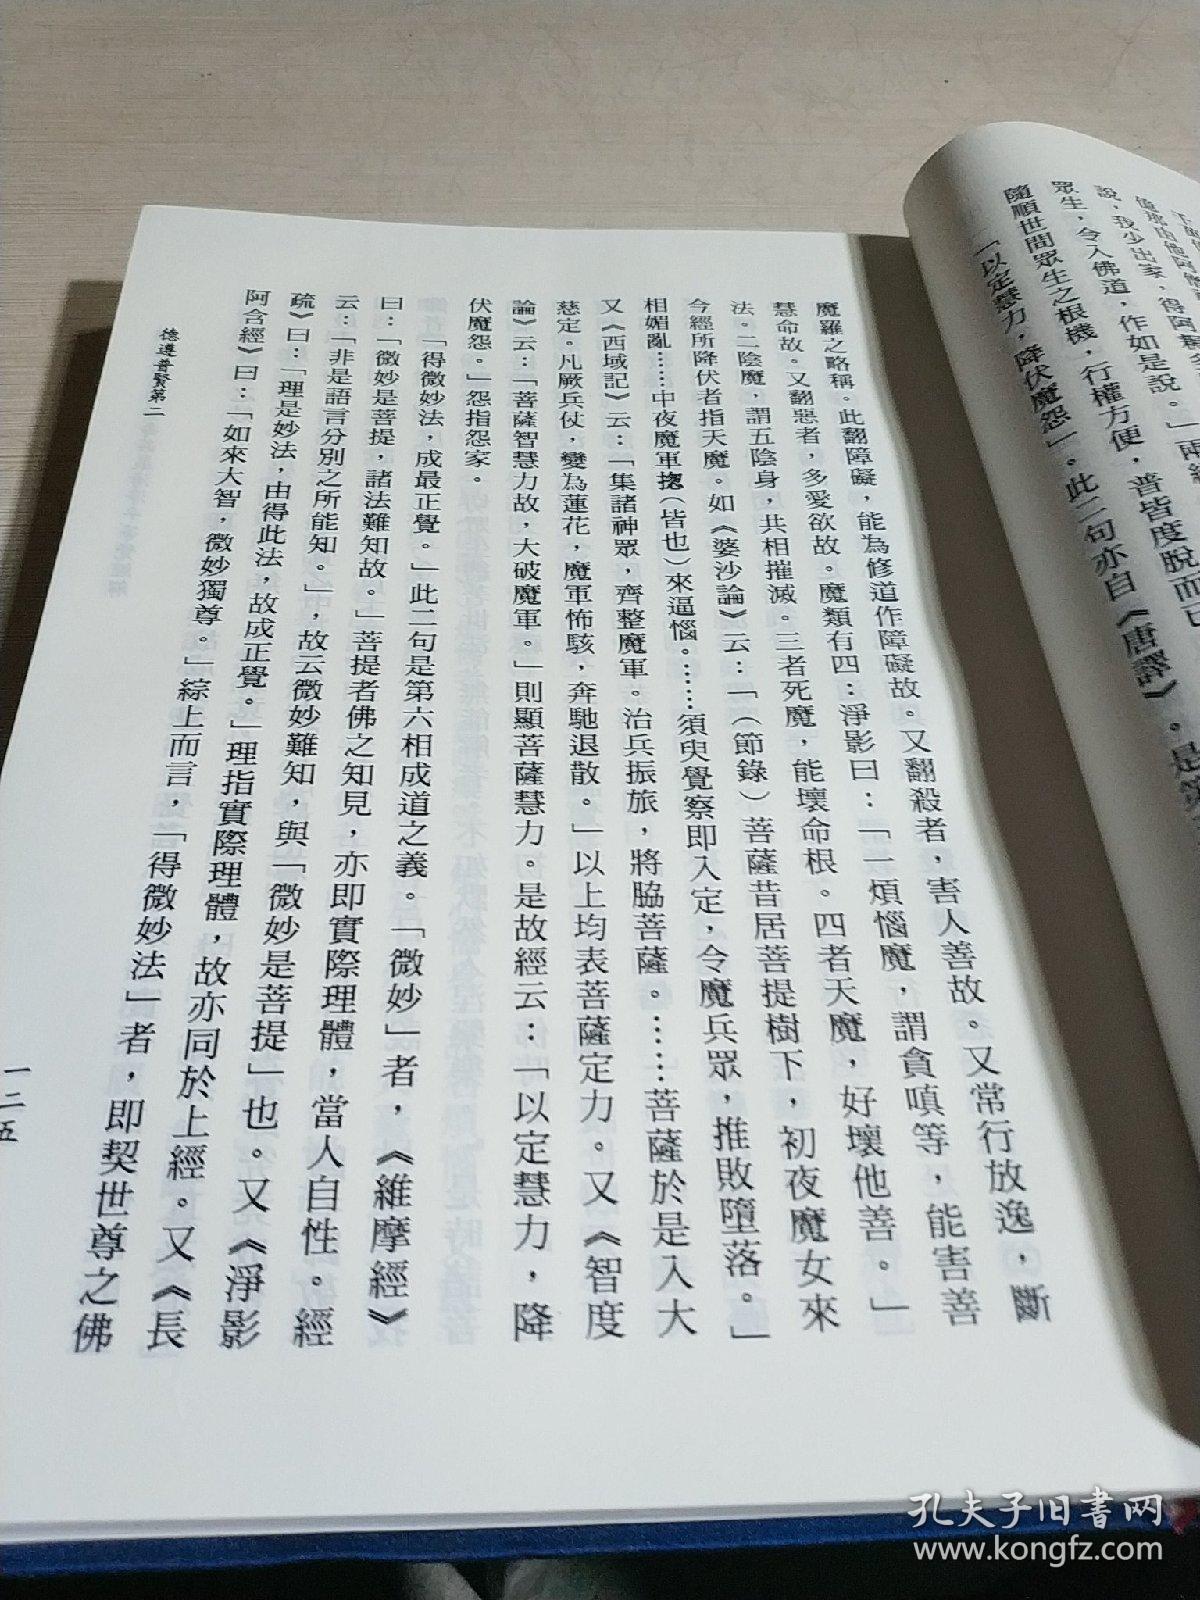 說，我少出家，得阿耨
眾生，令入佛道，作如是說。」兩經
隨順世間眾生之根機，行權方便，普皆度脫而已
「以定慧力，降伏魔怨」。此二句亦自《唐譯》。是第
魔羅之略稱。此翻障礙，能為修道作障礙故。又翻殺者，害人善故。又常行放逸，斷
慧命故。又翻惡者，多愛欲故。魔類有四：淨影曰：「一煩惱魔，謂貪嗔等，能害善
法。二陰魔，謂五陰身，共相摧滅。三者死魔，能壞命根。四者天魔，好壞他善。」
今經所降伏者指天魔。如《婆沙論》云：「（節錄）菩薩昔居菩提樹下，初夜魔女來
相媚亂……中夜魔軍揔（皆也）來逼惱。……須臾覺察即入定，令魔兵眾，推敗墮落。」
又《西域記》云：「集諸神眾，齊整魔軍。治兵振旅，將脇菩薩。……菩薩於是入大
慈定。凡厥兵仗，變為蓮花，魔軍怖駭，奔馳退散。」以上均表菩薩定力。又《智度
論》云：「菩薩智慧力故，大破魔軍。」則顯菩薩慧力。是故經云：「以定慧力，降
伏魔怨。」怨指怨家。
「得微妙法，成最正覺。」此二句是第六相成道之義。「微妙」者，《維摩經》
曰：「微妙是菩提，諸法難知故。」菩提者佛之知見，亦即實際理體，當人自性。經
云：「非是語言分別之所能知。」，故云微妙難知，與「微妙是菩提」也。又《淨影
疏》曰：「理是妙法，由得此法，故成正覺。」理指實際理體，故亦同於上經。又《長
阿含經》曰：「如來大智，微妙獨尊。」綜上而言，「得微妙法」者，即契世尊之佛
德遵普賢第二
一二五
孔夫子旧書网
www.kongfz.com